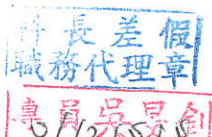 科長差假
職務代理章
專員吳旻